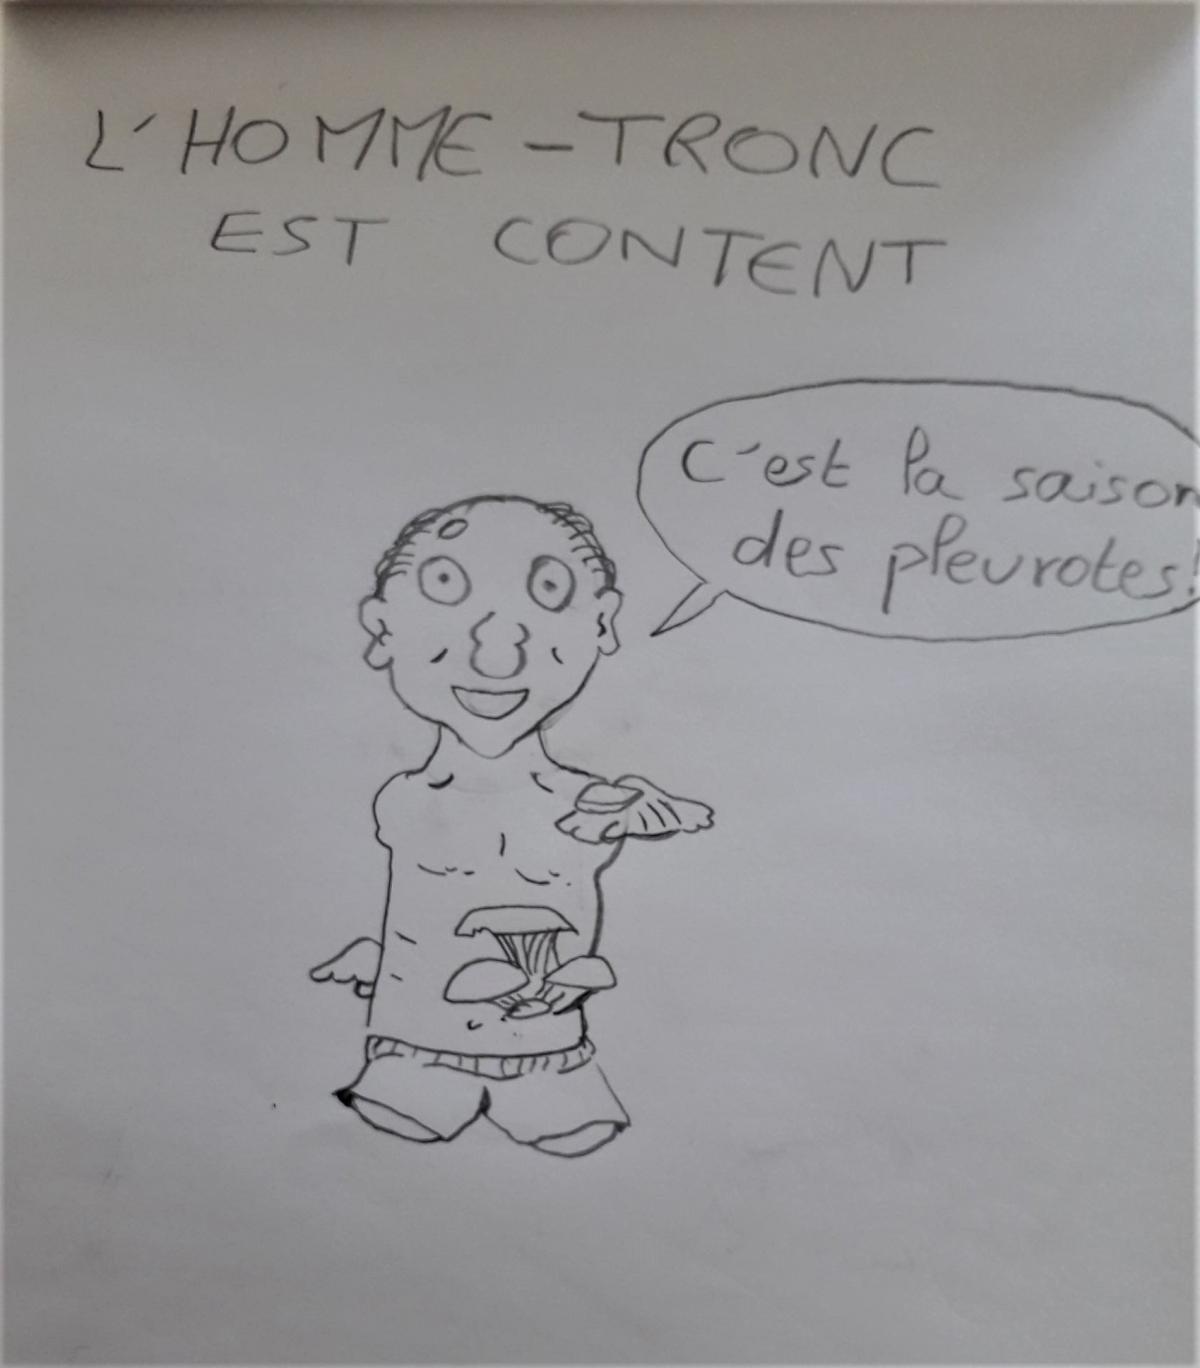 L'HOMME-TRONC
EST CONTENT
C'est la saison
des pleurotes!